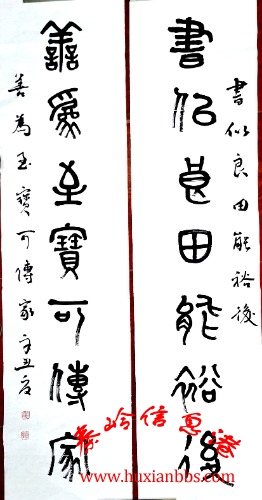 書似良田能裕後
書似良田能裕後
善爲至寶可傳家
善為至寶可傳家 辛丑夏
秦岭信息港
www.huxianbbs.com